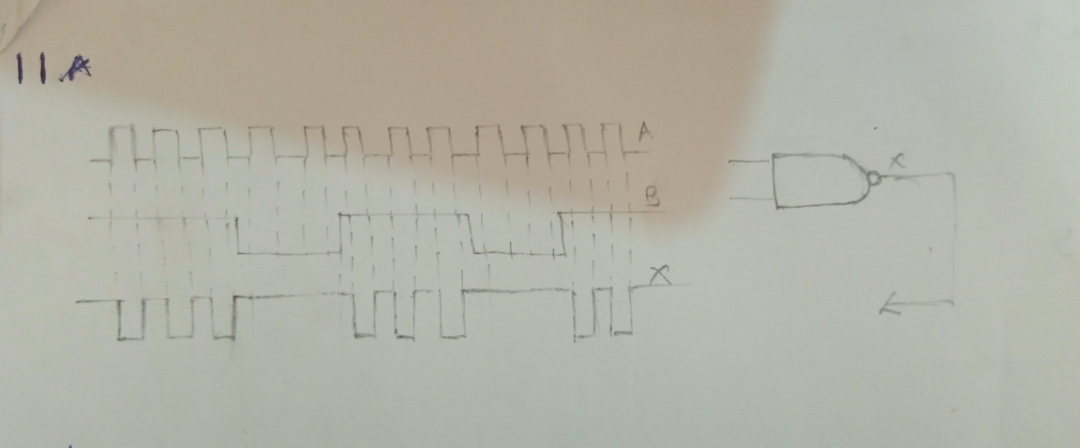 11.A
A
B
X
X